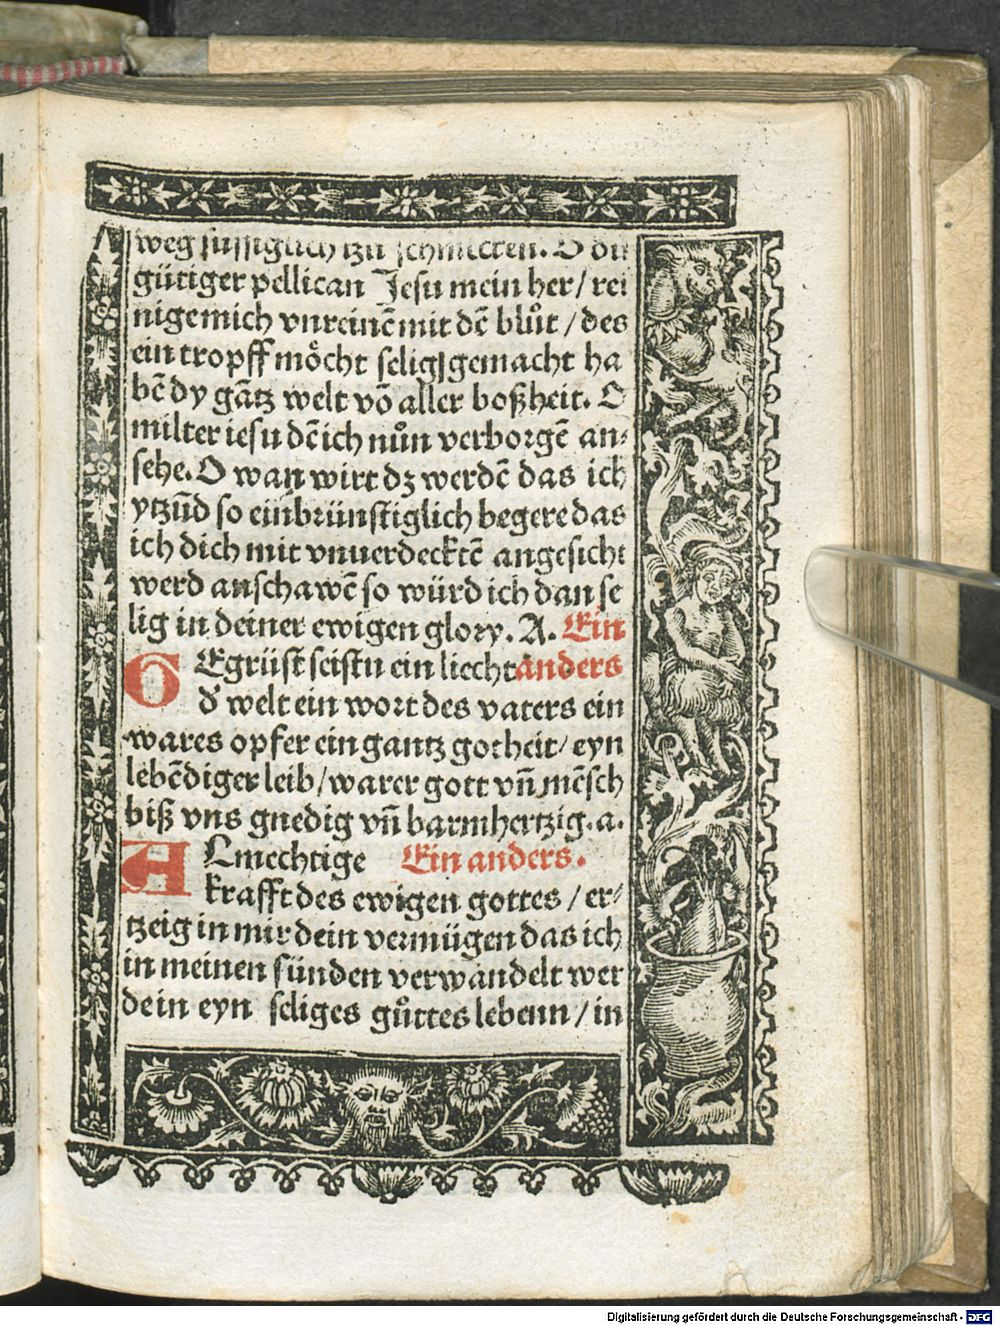 weg süssiglich tzu schmecken. O du
gütiger pellican Jesu mein her/ rei
nige mich vnreinē mit dē blůt / des
ein tropff möcht selig gemacht ha
bē dy gātz welt vō aller boßheit. O
milter iesu dē ich nůn verborgē an⸗
sehe. O wan wirt dz werdē das ich
ytzūd so einbrünstiglich begere das
ich dich mit vnuerdecktē angesicht
werd anschawē so würd ich dan se
lig in deiner ewigen glory. A. Ein
GEgrüst seistu ein liecht anders
d' welt ein wort des vaters ein
wares opfer ein gantz gotheit/ eyn
lebēdiger leib/ warer gott vn̄ mēsch
biß vns gnedig vn̄ barmhertzig. a.
ALmechtige Ein anders.
krafft des ewigen gottes / er⸗
tzeig in mir dein vermügen das ich
in meinen sünden verwandelt wer
de in eyn seliges gůttes lebenn / in
Digitalisierung gefördert durch die Deutsche Forschungsgemeinschaft - DFG